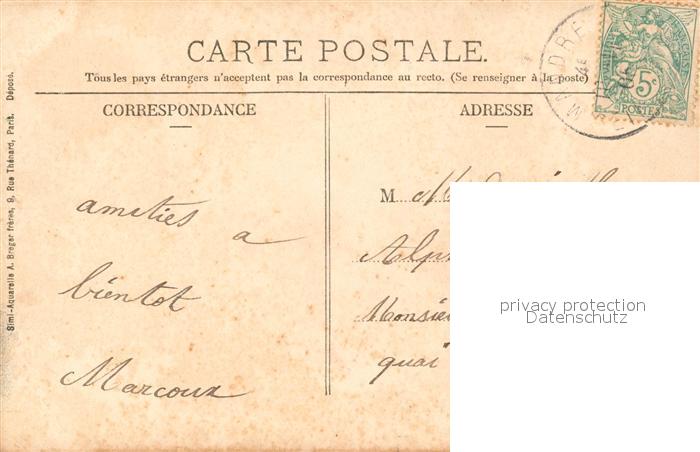 CARTE POSTALE.
Tous les pays étrangers n'acceptent pas la correspondance au recto. (Se renseigner à la poste)
CORRESPONDANCE
ADRESSE
amitiés a
bientot
Marcoux
M
Alp
Monsie
quai
privacy protection
Datenschutz
Simi-Aquarelle A. Breger frères, 9, Rue Thénard, Paris. Déposé.
MANDRE
5c
POSTES